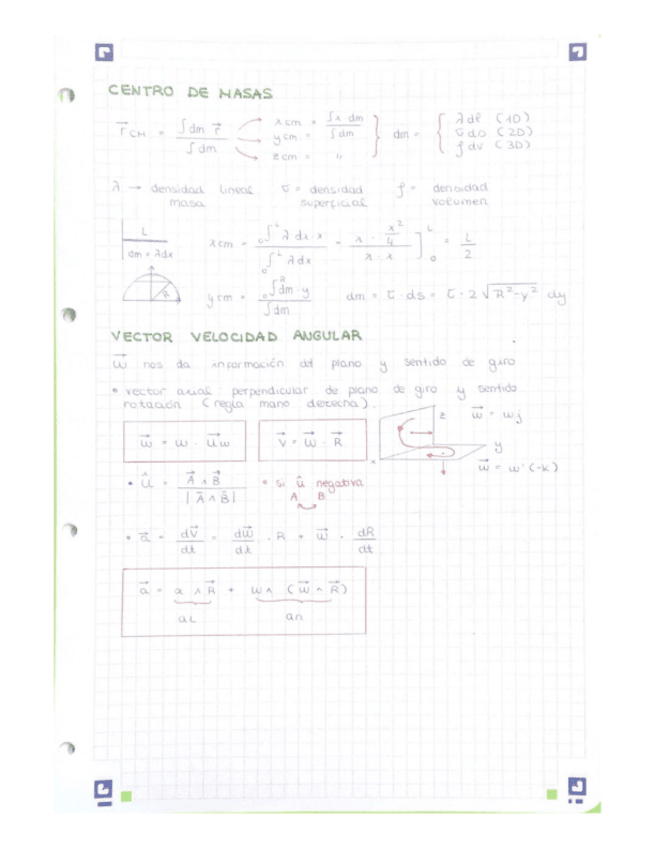 CENTRO DE MASAS
r⃗CM = ∫dm r⃗ / ∫dm → xcm = ∫x dm / ∫dm
ycm =
zcm = "
dm = { λdl (1D)
σds (2D)
ρdv (3D)
λ → densidad lineal σ = densidad ρ = densidad
masa superficial volumen
L
dm = λdx
xcm = ₀∫ᴸ λdx·x / ₀∫ᴸ λdx = λ · x²/4 / λ · x ]₀ᴸ = L/2
R
ycm = ₀∫ᴿ dm·y / ∫dm dm = σ·ds = σ·2√R²-y² dy
VECTOR VELOCIDAD ANGULAR
w⃗ nos da información del plano y sentido de giro
• vector axial: perpendicular de plano de giro y sentido
rotación (regla mano derecha).
w⃗ = w · u⃗w
v⃗ = w⃗ · R⃗
z w⃗ = wj
y
x w⃗ = w·(-k)
• û = A⃗ ∧ B⃗ / |A⃗ ∧ B⃗|
• si û negativa
A B
• a⃗ = dv⃗/dt = dw⃗/dt · R + w⃗ · dR/dt
a⃗ = α ∧ R⃗ + w ∧ (w⃗ ∧ R⃗)
aL an